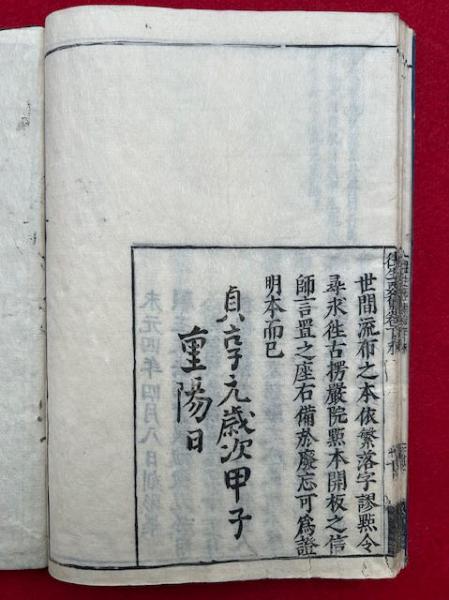 世間流布之本依繁落字謬㸃令
尋求徃古楞嚴院㸃本開板之信
師言置之座右備於廢忘可爲證
明本而已
貞享元歳次甲子
重陽日